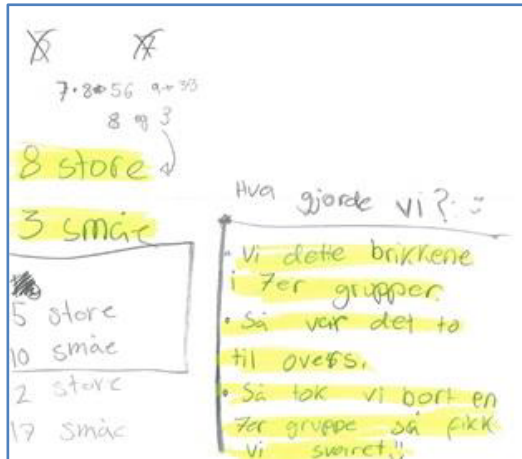 7·8→56
8 og 3
8 store
3 småe
5 store
10 småe
2 store
17 småe
Hva gjorde vi?
• Vi dette brikkene
i 7er grupper.
• Så var det to
til overs.
• Så tok vi bort en
7er gruppe så fikk
vi svaret!!